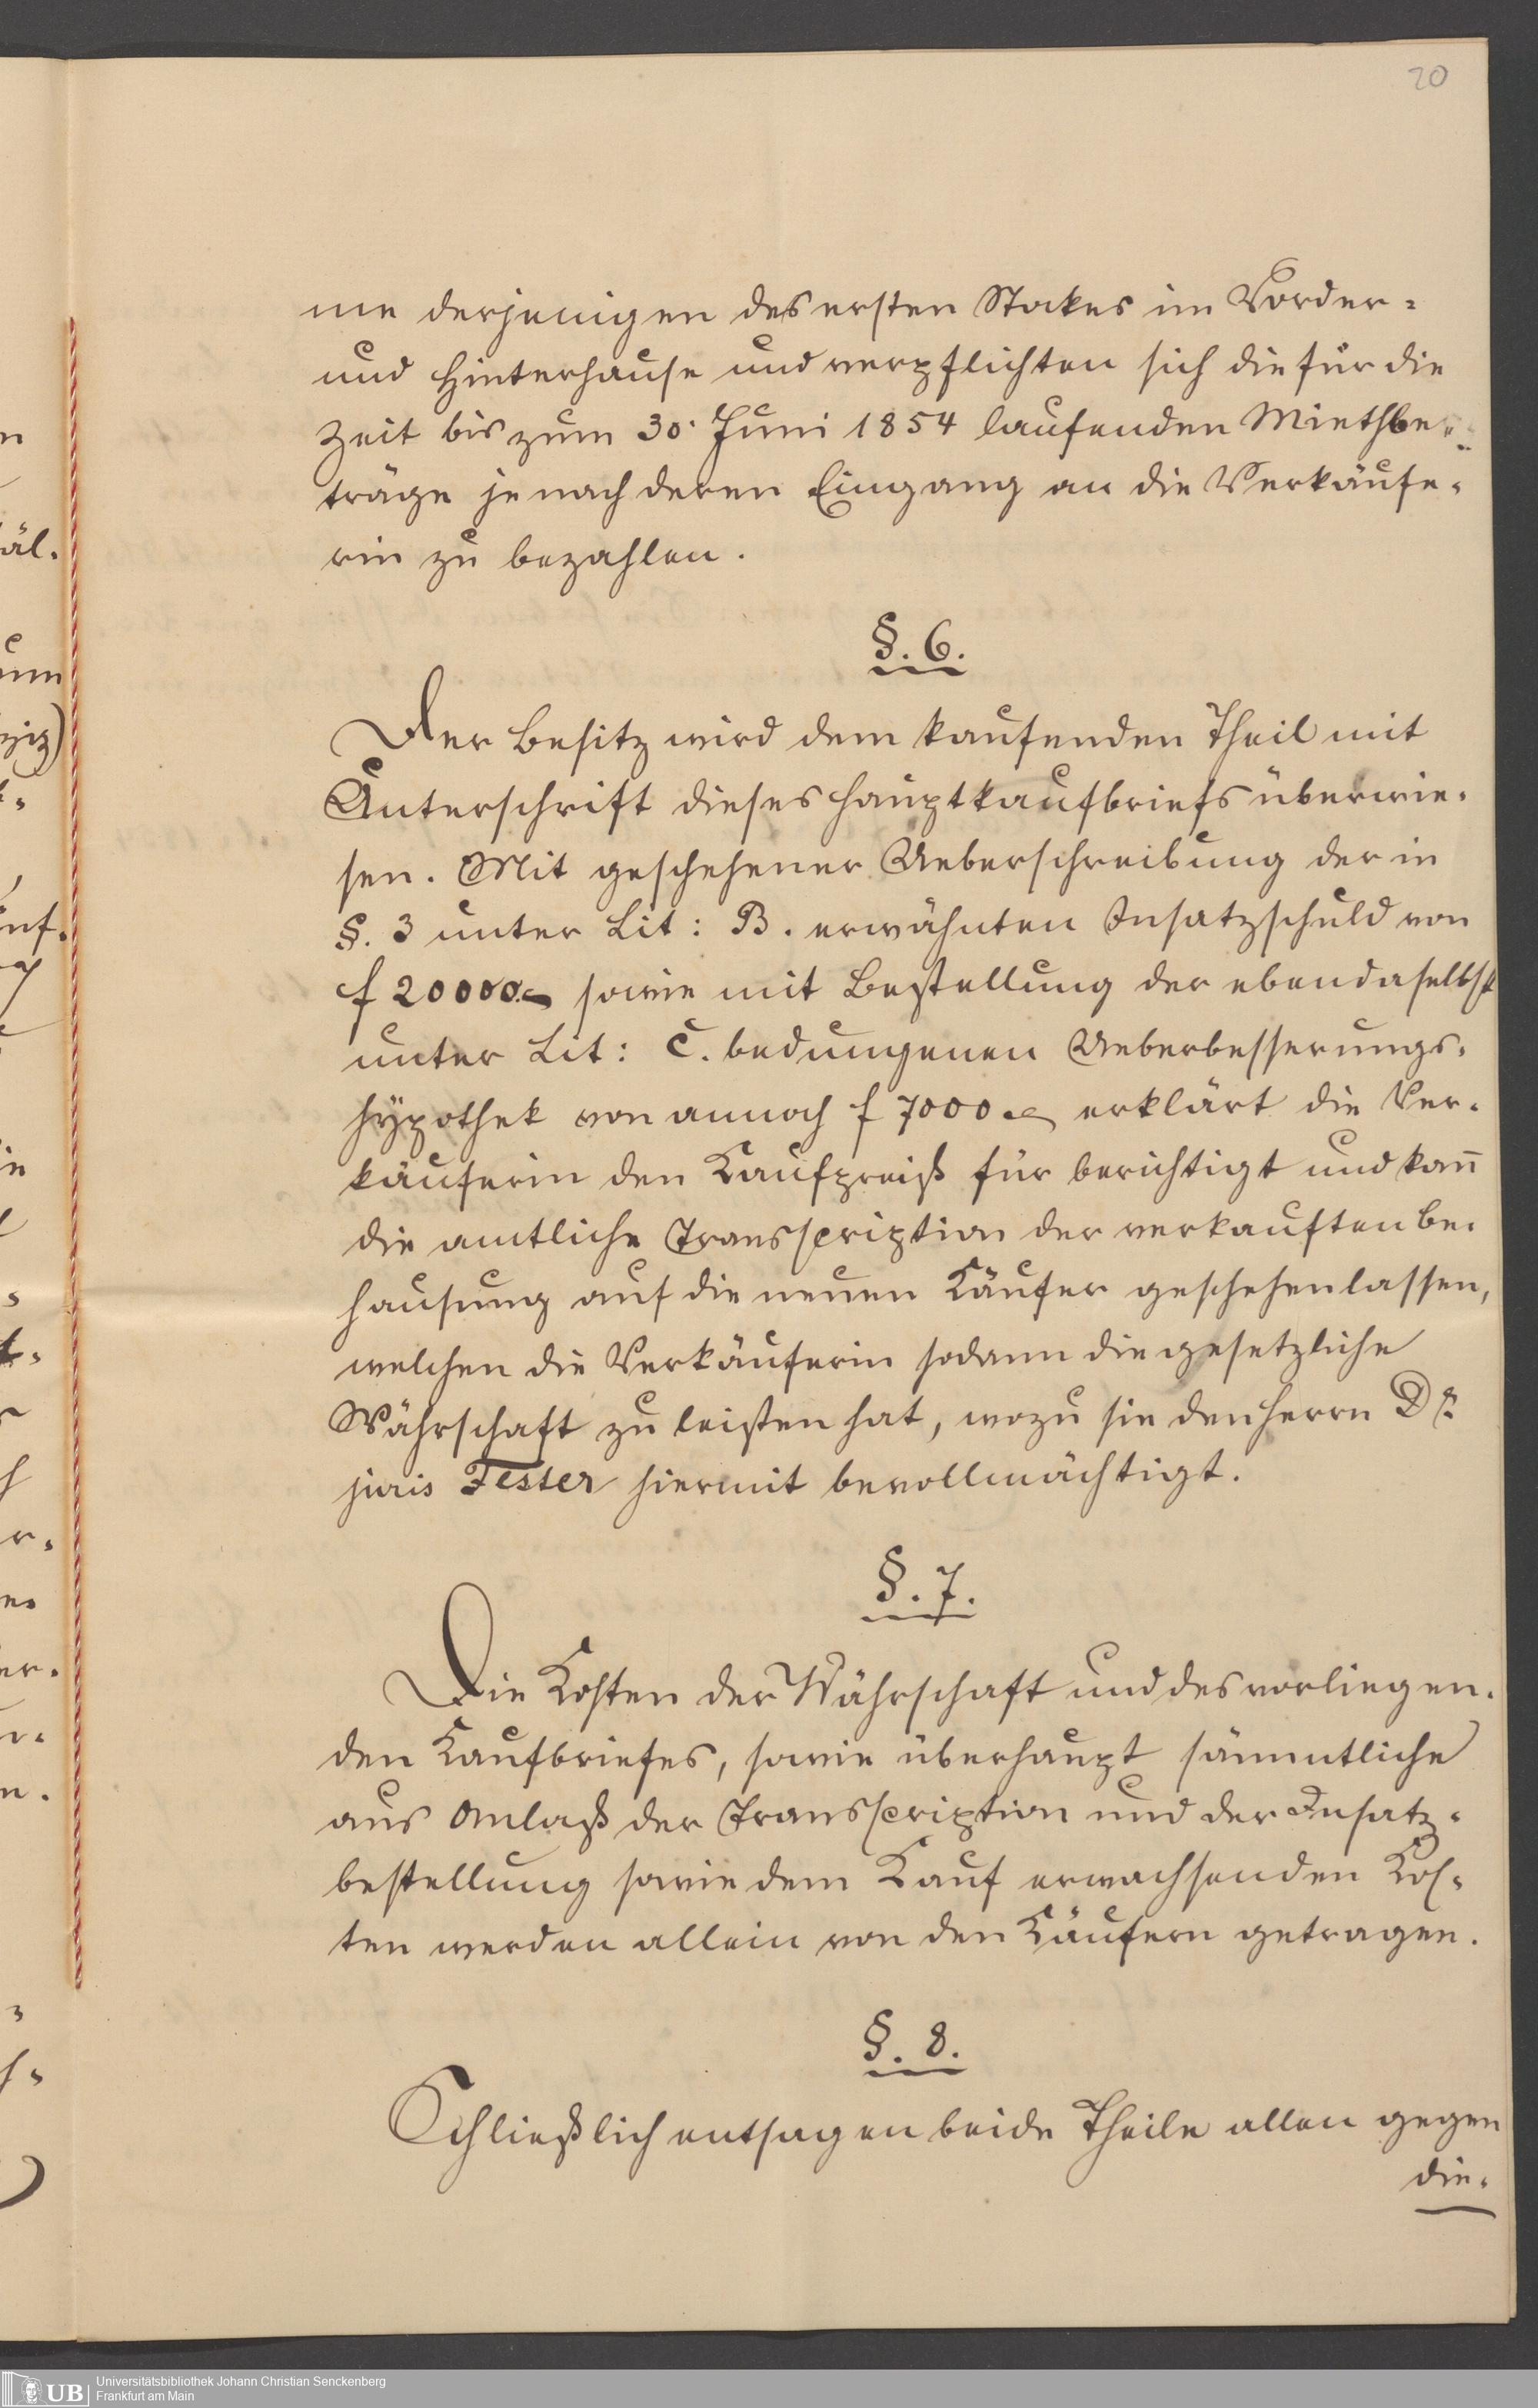 20
me derjenigen des ersten Stockes im Vorder-
und Hinterhause und verpflichten sich die für die
Zeit bis zum 30. Juni 1854 laufenden Miethbe-
träge je nach deren Eingang an die Verkäufe-
rin zu bezahlen.
§. 6.
Der Besitz wird dem kaufenden Theil mit
Unterschrift dieses Hauptkaufbriefs überwie-
sen. Mit geschehener Ueberschreibung der in
§. 3 unter Lit: B. erwähnten Insatzschuld von
f 20000.- sowie mit Bestellung der ebendaselbst
unter Lit: C. bedungenen Ueberbesserungs-
hypothek von annoch f 7000.- erklärt die Ver-
käuferin den Kaufpreiß für berichtigt und kan̄
die amtliche Transscription der verkauften Be-
hausung auf die neuen Käufer geschehen lassen,
welchen die Verkäuferin sodann die gesetzliche
Währschaft zu leisten hat, wozu sie den Herrn Dr.
juris Fester hiermit bevollmächtigt.
§. 7.
Die Kosten der Währschaft und des vorliegen-
den Kaufbriefes, sowie überhaupt sämmtliche
aus Anlaß der Transscription und der Insatz-
bestellung sowie dem Kauf erwachsenden Kos-
ten werden allein von den Käufern getragen.
§. 8.
Schließlich entsagen beide Theile allen gegen
die-
UB
Universitätsbibliothek Johann Christian Senckenberg
Frankfurt am Main